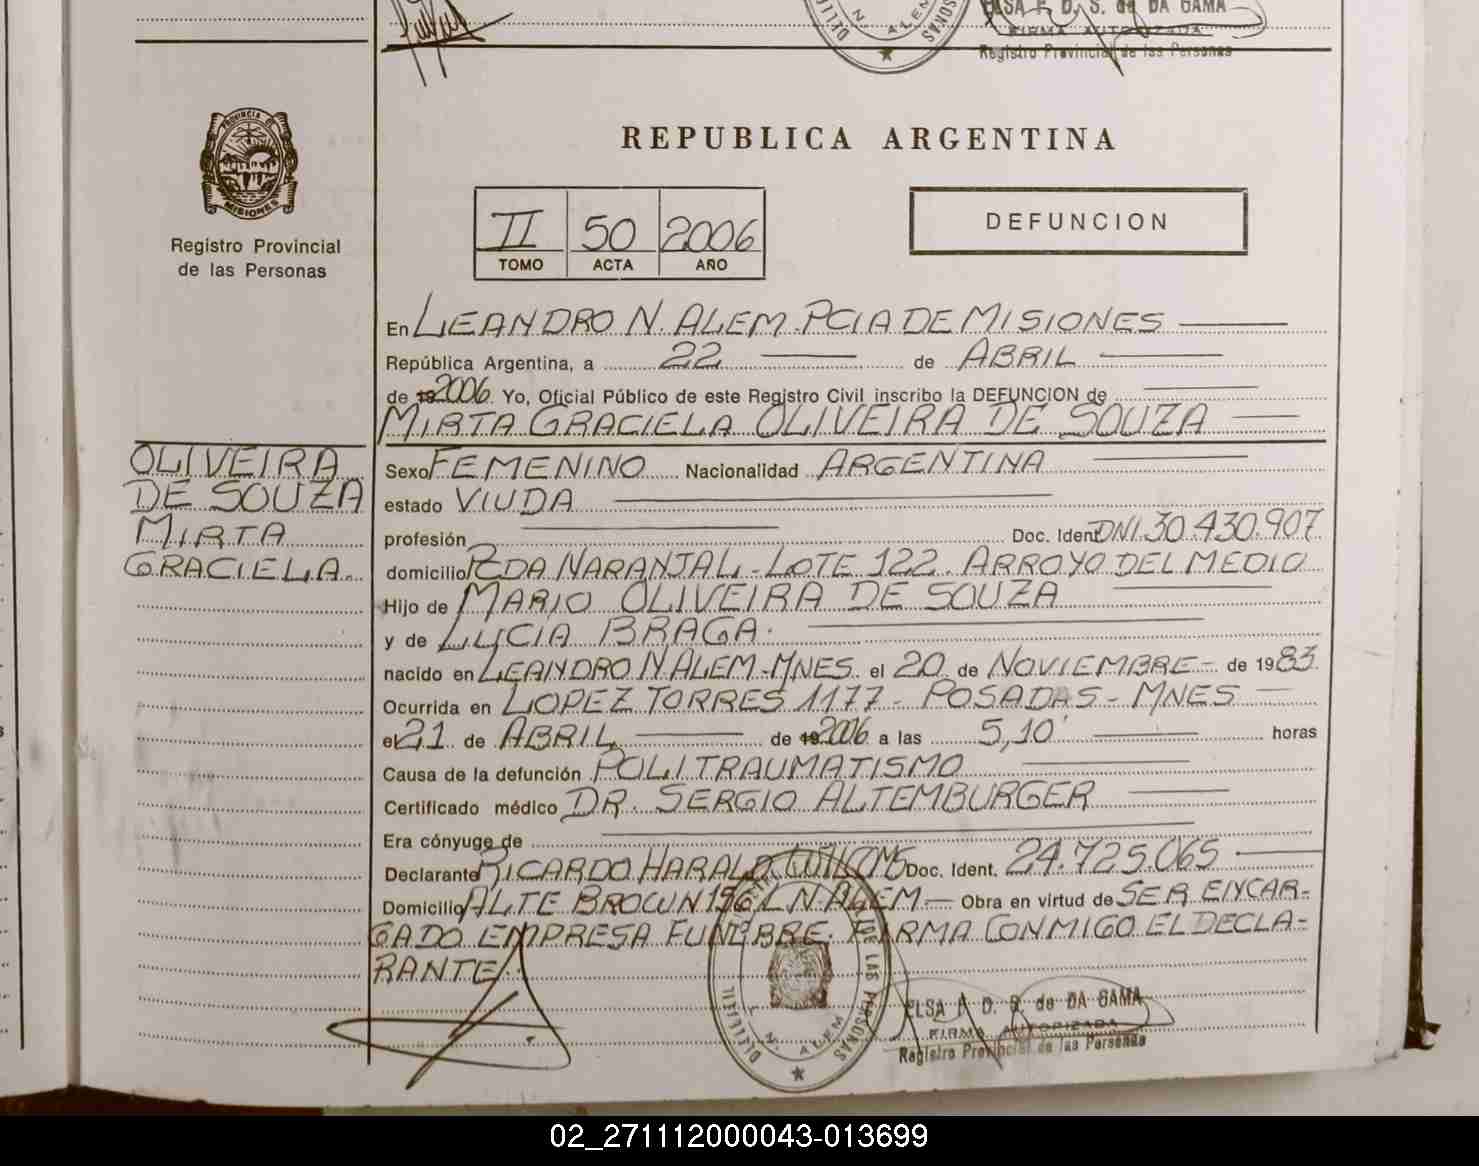 ELSA F. D. S. de DA GAMA
FIRMA AUTORIZADA
Registro Provincial de las Personas
N. ALEM
PROVINCIA DE
MISIONES
Registro Provincial
de las Personas
REPUBLICA ARGENTINA
II 50 2006
TOMO ACTA AÑO
DEFUNCION
En LEANDRO N. ALEM. PCIA DE MISIONES
República Argentina, a 22 de ABRIL
de 19 2006. Yo, Oficial Público de este Registro Civil inscribo la DEFUNCION de
MIRTA GRACIELA OLIVEIRA DE SOUZA
OLIVEIRA
DE SOUZA
MIRTA
GRACIELA.
Sexo FEMENINO Nacionalidad ARGENTINA
estado VIUDA
profesión Doc. Ident. DNI. 30.430.907
domicilio PDA NARANJAL - LOTE 122. ARROYO DEL MEDIO
Hijo de MARIO OLIVEIRA DE SOUZA
y de LUCIA BRAGA.
nacido en LEANDRO N ALEM - MNES. el 20 de NOVIEMBRE - de 1983
Ocurrida en LOPEZ TORRES 1177 - POSADAS - MNES
el 21 de ABRIL de 19 2006 a las 5,10' horas
Causa de la defunción POLITRAUMATISMO
Certificado médico DR. SERGIO ALTEMBURGER
Era cónyuge de
Declarante RICARDO HARALD Doc. Ident. 24.725.065
Domicilio ALTE BROWN 196 L N ALEM - Obra en virtud de SER ENCAR-
GADO EMPRESA FUNEBRE. FIRMA CONMIGO EL DECLA-
RANTE.
DE LAS PERSONAS
N. ALEM
ELSA F. D. S. de DA GAMA
FIRMA AUTORIZADA
Registro Provincial de las Personas
02_271112000043-013699